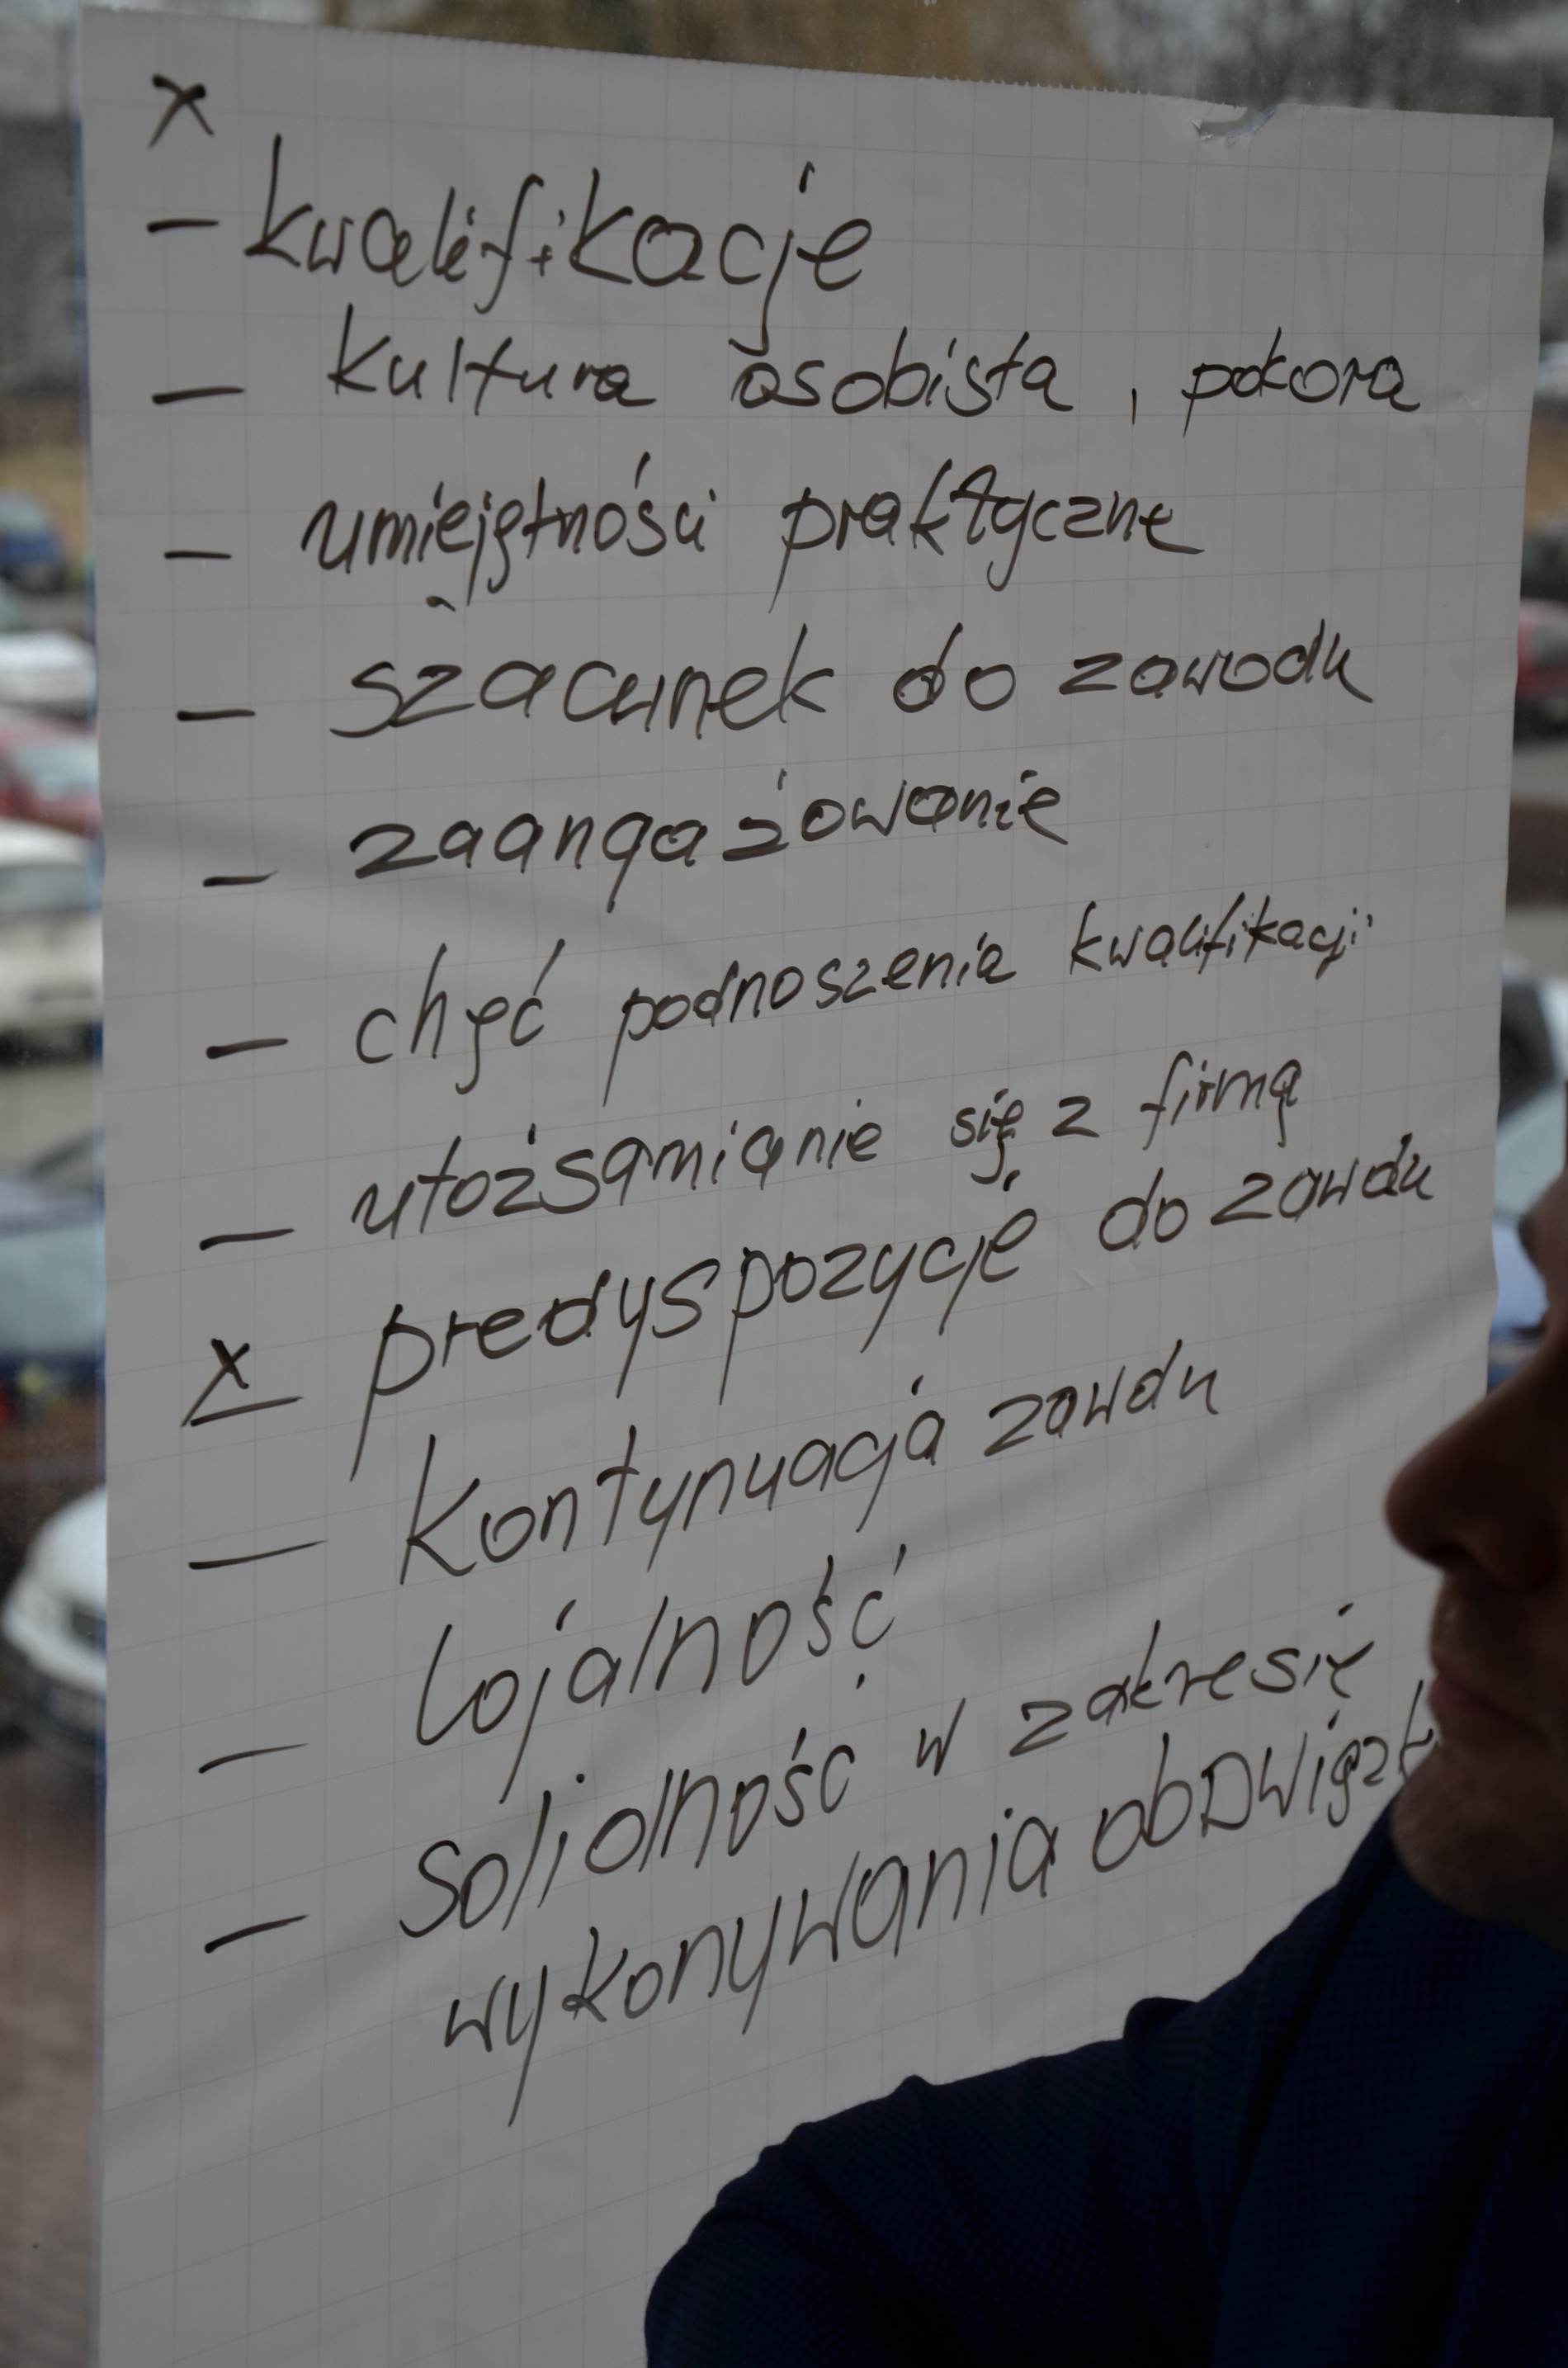 x
- kwalifikacje
- kultura osobista, pokora
- umiejętności praktyczne
- szacunek do zawodu
- zaangażowanie
- chęć podnoszenia kwalifikacji
- utożsamianie się z firmą
x - predyspozycje do zawdu
- kontynuacja zawdu
- lojalność
- solidność w zakresie
wykonywania